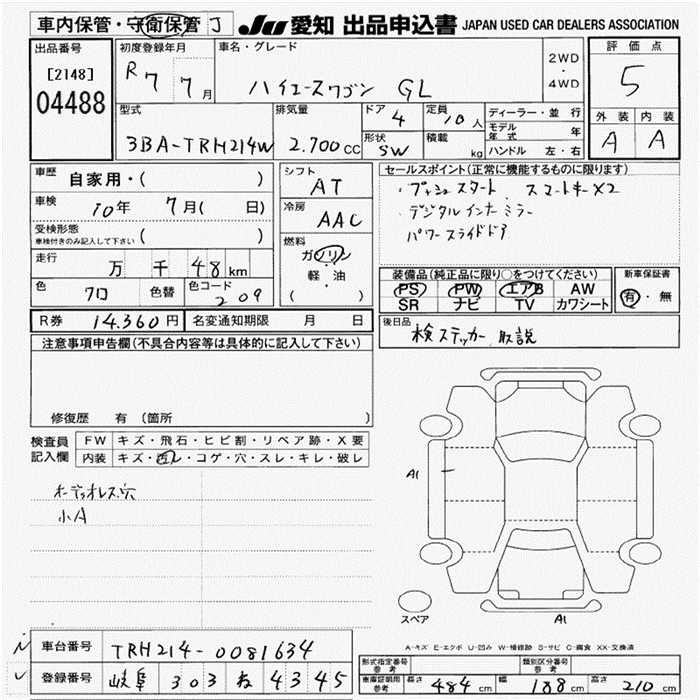 車内保管・守衛保管 J
JU 愛知 出品申込書 JAPAN USED CAR DEALERS ASSOCIATION
出品番号
[2148]
04488
初度登録年月
R 7 7月
車名・グレード
ハイエースワゴン GL
2WD
・
4WD
評価点
5
外装 内装
A A
型式
3BA-TRH214W
排気量
2.700cc
ドア 4
形状 SW
定員 10人
積載 kg
ディーラー・並行
モデル年式 年
ハンドル 左・右
車歴 自家用・( )
車検 10年 7月( 日)
受検形態
車検付きのみ記入して下さい ( )
走行 万 千 48km
色 クロ 色替 色コード 209
シフト
AT
冷房
AAC
燃料
ガソリン
・
軽・油
( )
セールスポイント(正常に機能するものに限ります)
・プッシュスタート スマートキーX2
・デジタルインナーミラー
パワースライドドア
装備品(純正品に限り○をつけてください)
PS PW エアB AW
SR ナビ TV カワシート
新車保証書
有・無
R券 14.360円 名変通知期限 月 日
後日品
検ステッカー 取説
注意事項申告欄(不具合内容等は具体的に記入して下さい)
修復歴 有(箇所 )
検査員記入欄
FW キズ・飛石・ヒビ割・リペア跡・X要
内装 キズ・凹レ・コゲ・穴・スレ・キレ・破レ
オーディオレス穴
小A
A1
スペア
A1
A-キズ E-エクボ U-凹み W-補修跡 S-サビ C-腐食 XX-交換済
車台番号 TRH214-0081634
登録番号 岐阜 303 ね 4345
形式指定番号 参考
類別区分番号 参考
車庫証明用 参考 長さ 484cm 幅 188cm 高さ 210cm